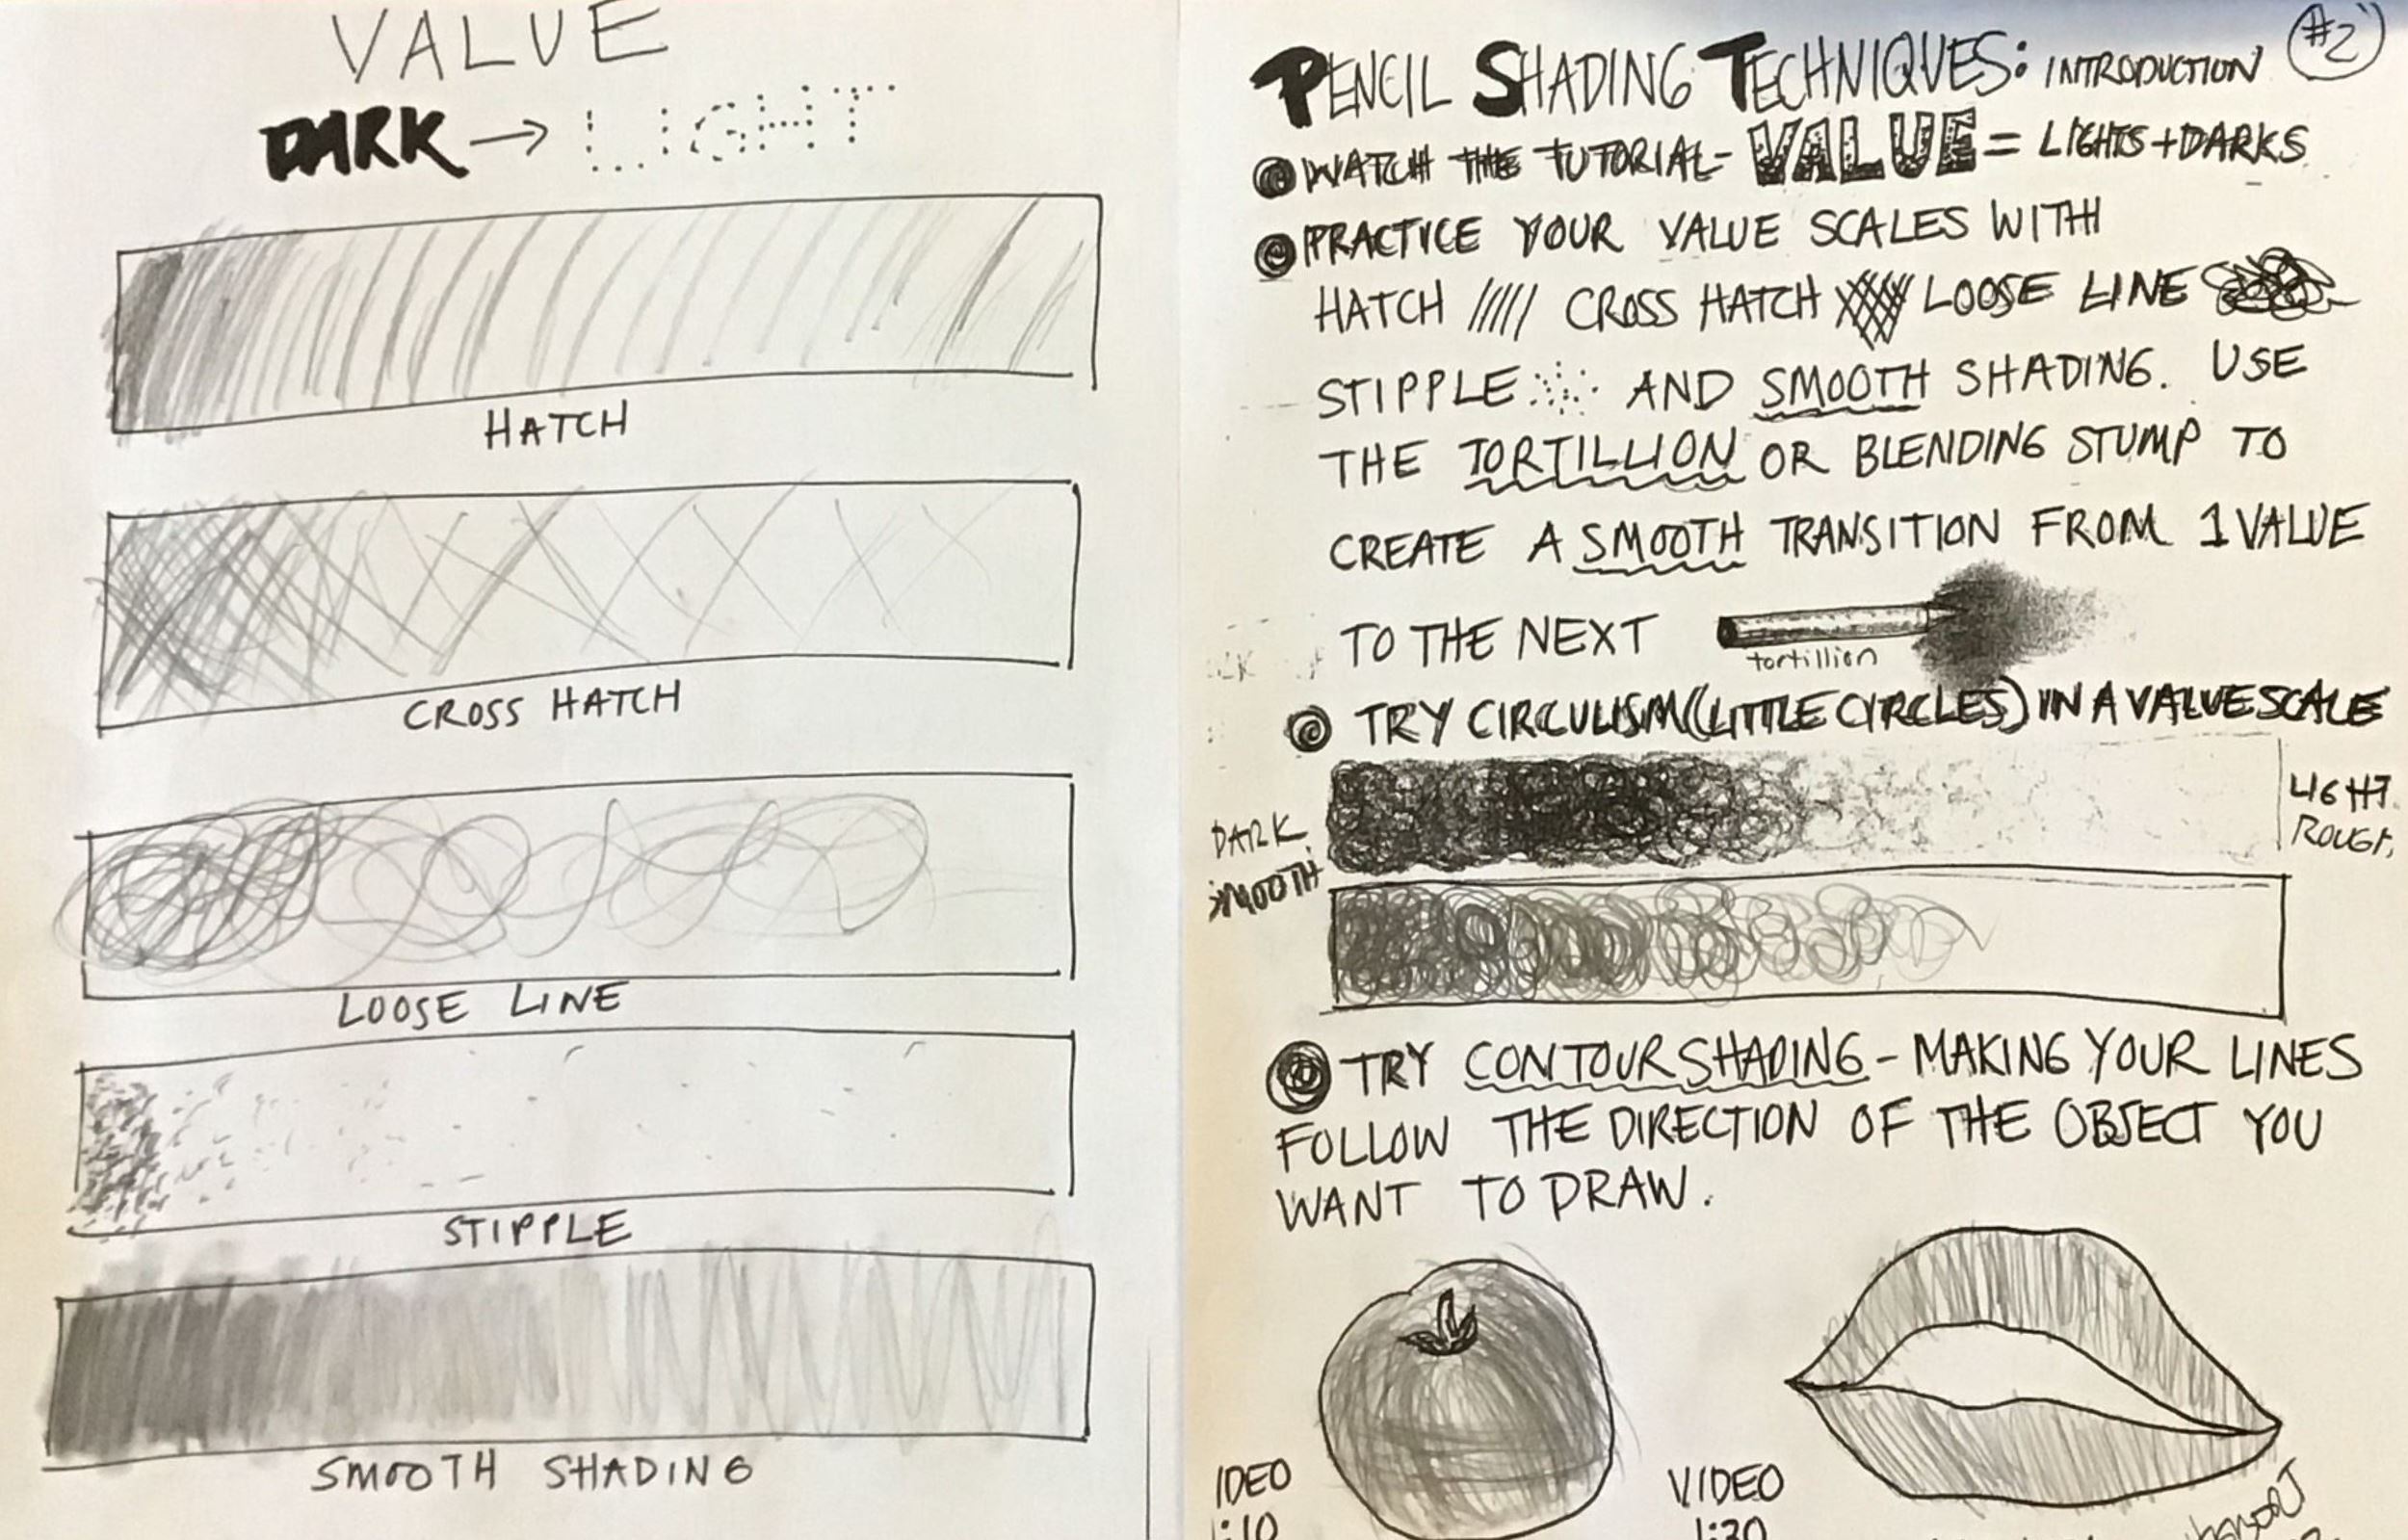 VALUE
DARK → LIGHT
HATCH
CROSS HATCH
LOOSE LINE
STIPPLE
SMOOTH SHADING
PENCIL SHADING TECHNIQUES: INTRODUCTION #2
WATCH THE TUTORIAL- VALUE = LIGHTS + DARKS
PRACTICE YOUR VALUE SCALES WITH
HATCH CROSS HATCH LOOSE LINE
STIPPLE AND SMOOTH SHADING. USE
THE TORTILLION OR BLENDING STUMP TO
CREATE A SMOOTH TRANSITION FROM 1 VALUE
TO THE NEXT
tortillion
TRY CIRCULISM (LITTLE CIRCLES) IN A VALUE SCALE
DARK
SMOOTH
LIGHT
ROUGH
TRY CONTOUR SHADING - MAKING YOUR LINES
FOLLOW THE DIRECTION OF THE OBJECT YOU
WANT TO DRAW.
IDEO
1:10
VIDEO
1:30